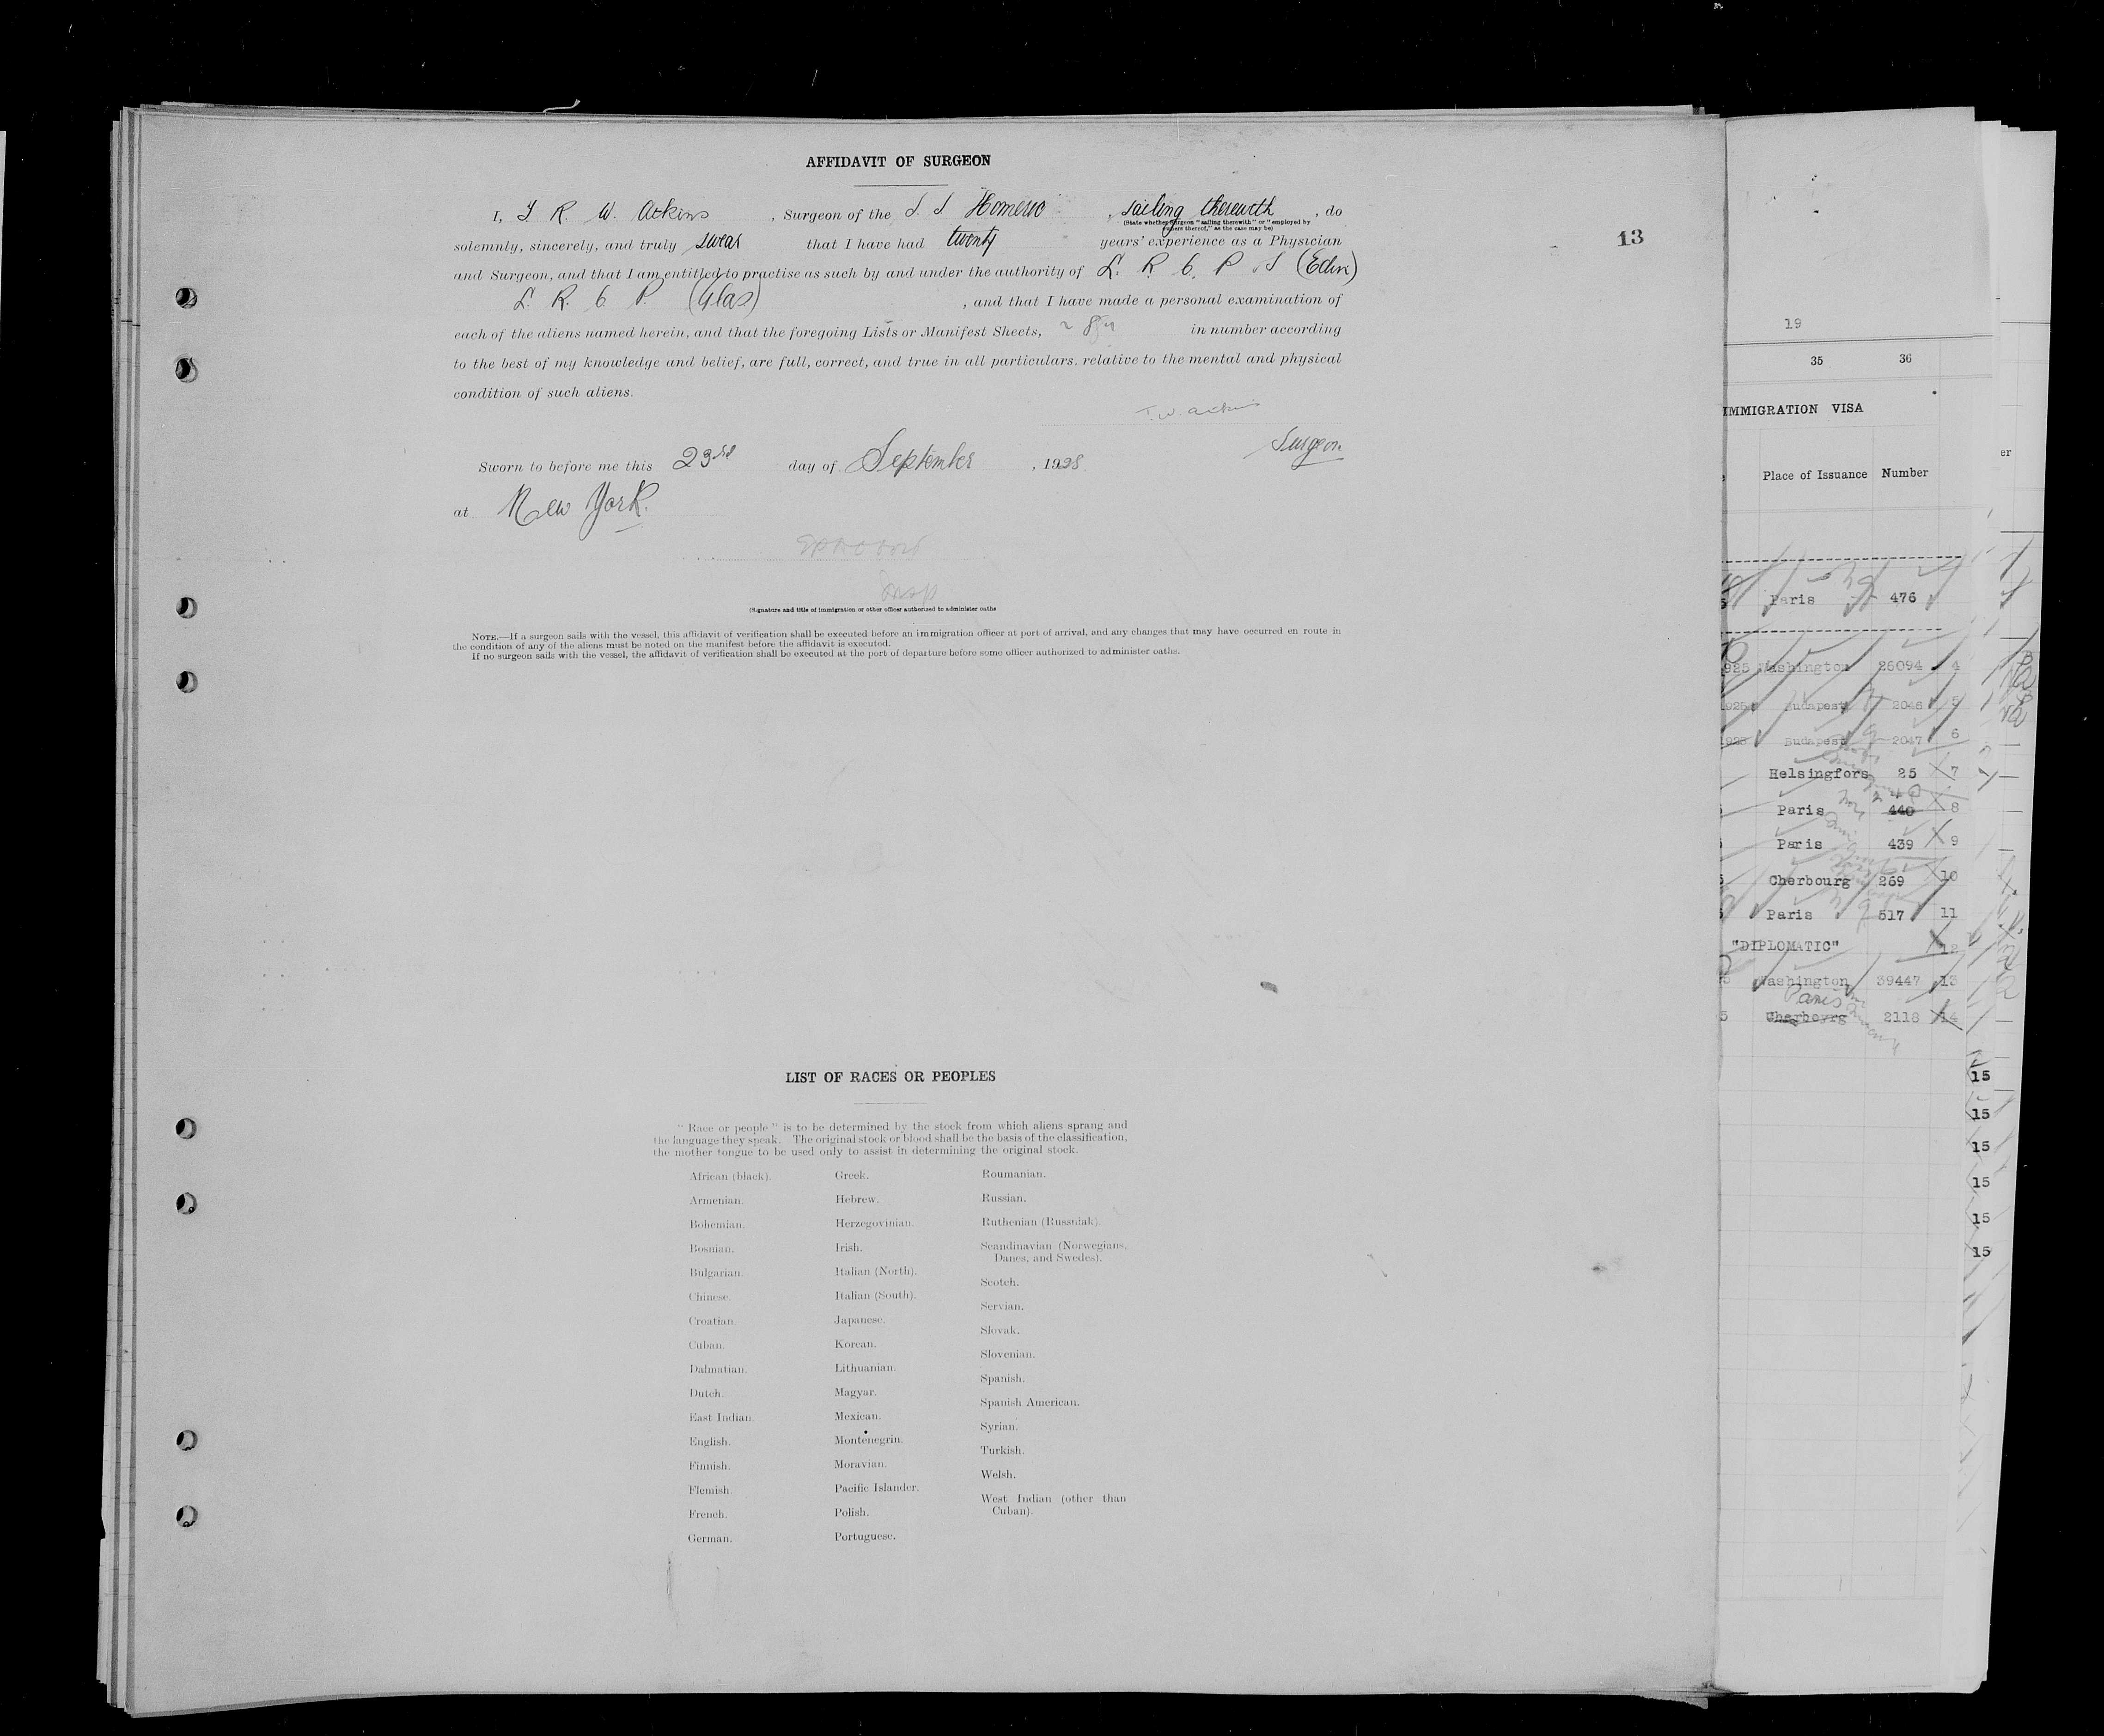 AFFIDAVIT OF SURGEON
I, T R. W. Atkins, Surgeon of the S. S Homeric, sailing therewith, do
(State whether surgeon "sailing therewith" or "employed by
owners thereof," as the case may be)
solemnly, sincerely, and truly swear that I have had twenty years' experience as a Physician
and Surgeon, and that I am entitled to practise as such by and under the authority of L. R. C. P. S (Edin)
L. R. C P. (Glas), and that I have made a personal examination of
each of the aliens named herein, and that the foregoing Lists or Manifest Sheets, in number according
to the best of my knowledge and belief, are full, correct, and true in all particulars. relative to the mental and physical
condition of such aliens.
T. W. Atkins
Surgeon
Sworn to before me this 23rd day of September, 1925.
at New York.
Insp
(Signature and title of immigration or other officer authorized to administer oaths
NOTE.—If a surgeon sails with the vessel, this affidavit of verification shall be executed before an immigration officer at port of arrival, and any changes that may have occurred en route in
the condition of any of the aliens must be noted on the manifest before the affidavit is executed.
If no surgeon sails with the vessel, the affidavit of verification shall be executed at the port of departure before some officer authorized to administer oaths.
13
LIST OF RACES OR PEOPLES
"Race or people" is to be determined by the stock from which aliens sprang and
the language they speak. The original stock or blood shall be the basis of the classification,
the mother tongue to be used only to assist in determining the original stock.
African (black).
Armenian.
Bohemian.
Bosnian.
Bulgarian.
Chinese.
Croatian.
Cuban.
Dalmatian.
Dutch.
East Indian.
English.
Finnish.
Flemish.
French.
German.
Greek.
Hebrew.
Herzegovinian.
Irish.
Italian (North).
Italian (South).
Japanese.
Korean.
Lithuanian.
Magyar.
Mexican.
Montenegrin.
Moravian.
Pacific Islander.
Polish.
Portuguese.
Roumanian.
Russian.
Ruthenian (Russniak).
Scandinavian (Norwegians,
Danes, and Swedes).
Scotch.
Servian.
Slovak.
Slovenian.
Spanish.
Spanish American.
Syrian.
Turkish.
Welsh.
West Indian (other than
Cuban).
19
35 36
IMMIGRATION VISA
Place of Issuance Number
Paris 476
925 Washington 26094 4
925 Budapest 2046 5
925 Budapest 2047 6
Helsingfors 25 7
Paris 440 8
Paris 439 9
Cherbourg 269 10
Paris 517 11
"DIPLOMATIC" 12
Washington 39447 13
Paris
5 Cherbourg 2118 14
15
15
15
15
15
15